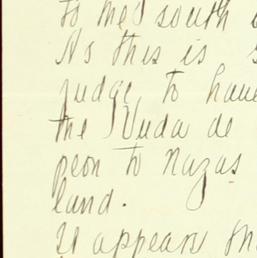 to me south
As this is s
judge, to have
the Viuda de
peon to Nazas
land.
It appears th